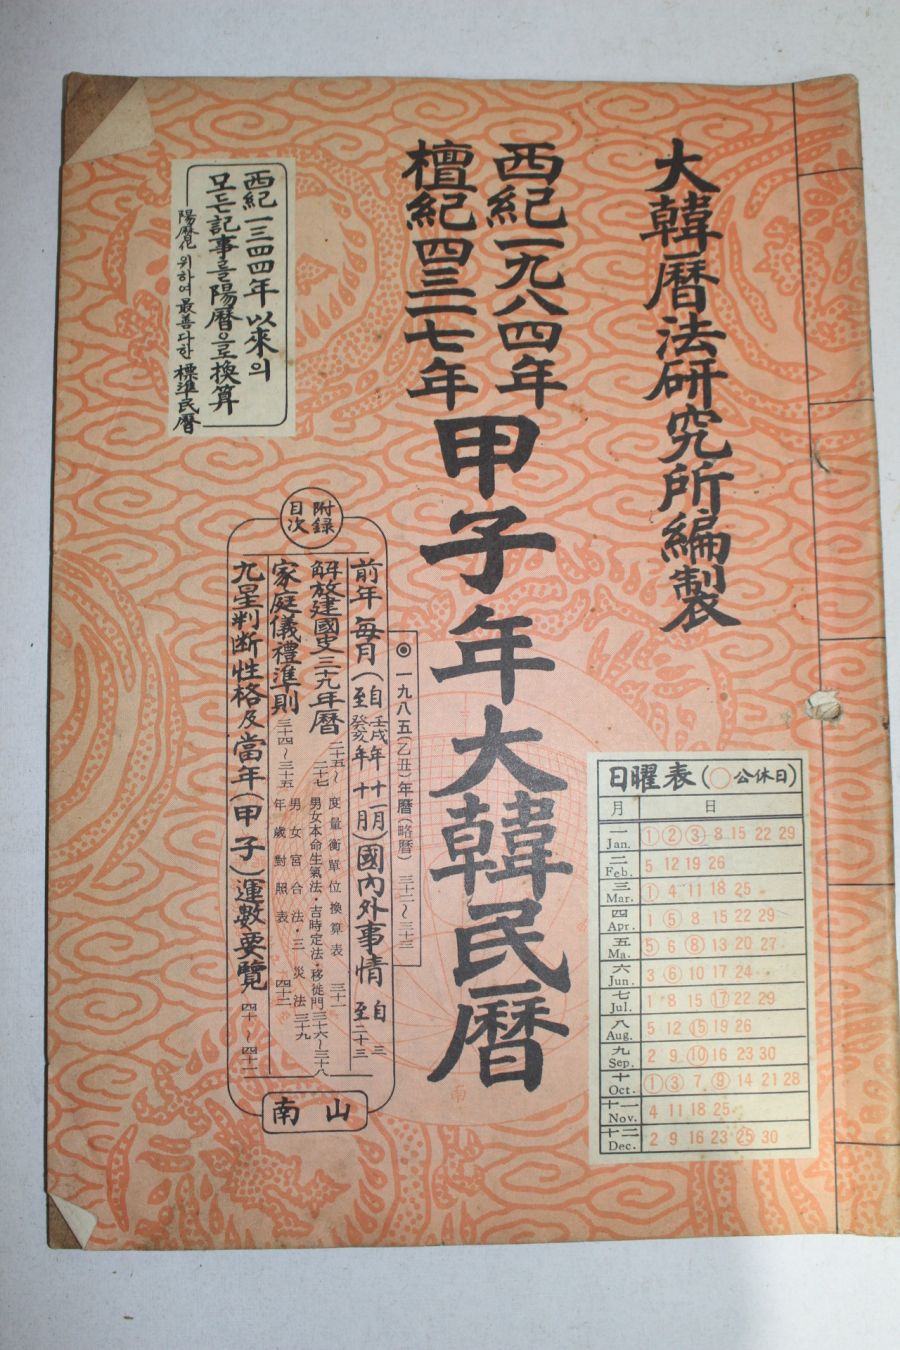 大韓曆法硏究所編製
西紀一九八四年
檀紀四三一七年
甲子年大韓民曆
西紀一三四四年以來의
모든記事를陽曆으로換算
陽曆化 위하여 最善다한 標準民曆
附錄
目次
◉一九八五(乙丑)年曆(略曆) 三十二~三十三
前年每月(自壬戌年十一月 至癸亥年十月)國內外事情 自三至二十三
解放建國史三九年曆 二十五~二十七
度量衡單位換算表 三十一
男女本命生氣法·吉時定法·移徙門 三十六~三十八
家庭儀禮準則 三十四~三十五
男女宮合法·三災法 三十九
年歲對照表 四十二
九星判斷性格及當年(甲子)運數要覽 四十~四十一
南山
南
日曜表(○公休日)
月 日
一 Jan. ① ② ③ 8 15 22 29
二 Feb. 5 12 19 26
三 Mar. ① 4 11 18 25
四 Apr. 1 ⑤ 8 15 22 29
五 Ma. ⑤ 6 ⑧ 13 20 27
六 Jun. 3 ⑥ 10 17 24
七 Jul. 1 8 15 ⑰ 22 29
八 Aug. 5 12 ⑮ 19 26
九 Sep. 2 9 ⑩ 16 23 30
十 Oct. ① ③ 7 ⑨ 14 21 28
十一 Nov. 4 11 18 25
十二 Dec. 2 9 16 23 ㉕ 30